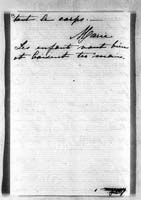 tout le corps. —
Marie
Les enfants vont bien
et baisent tes mains.